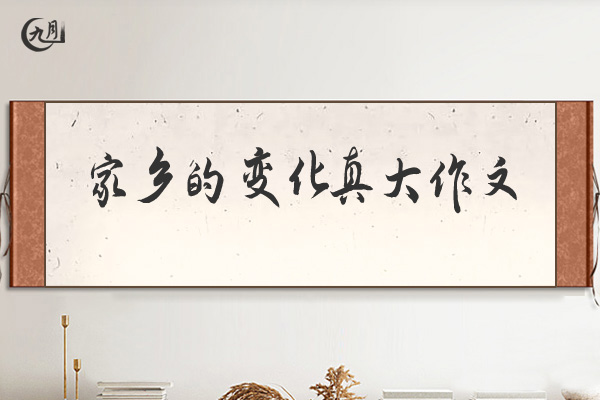 九月
家乡的变化真大作文